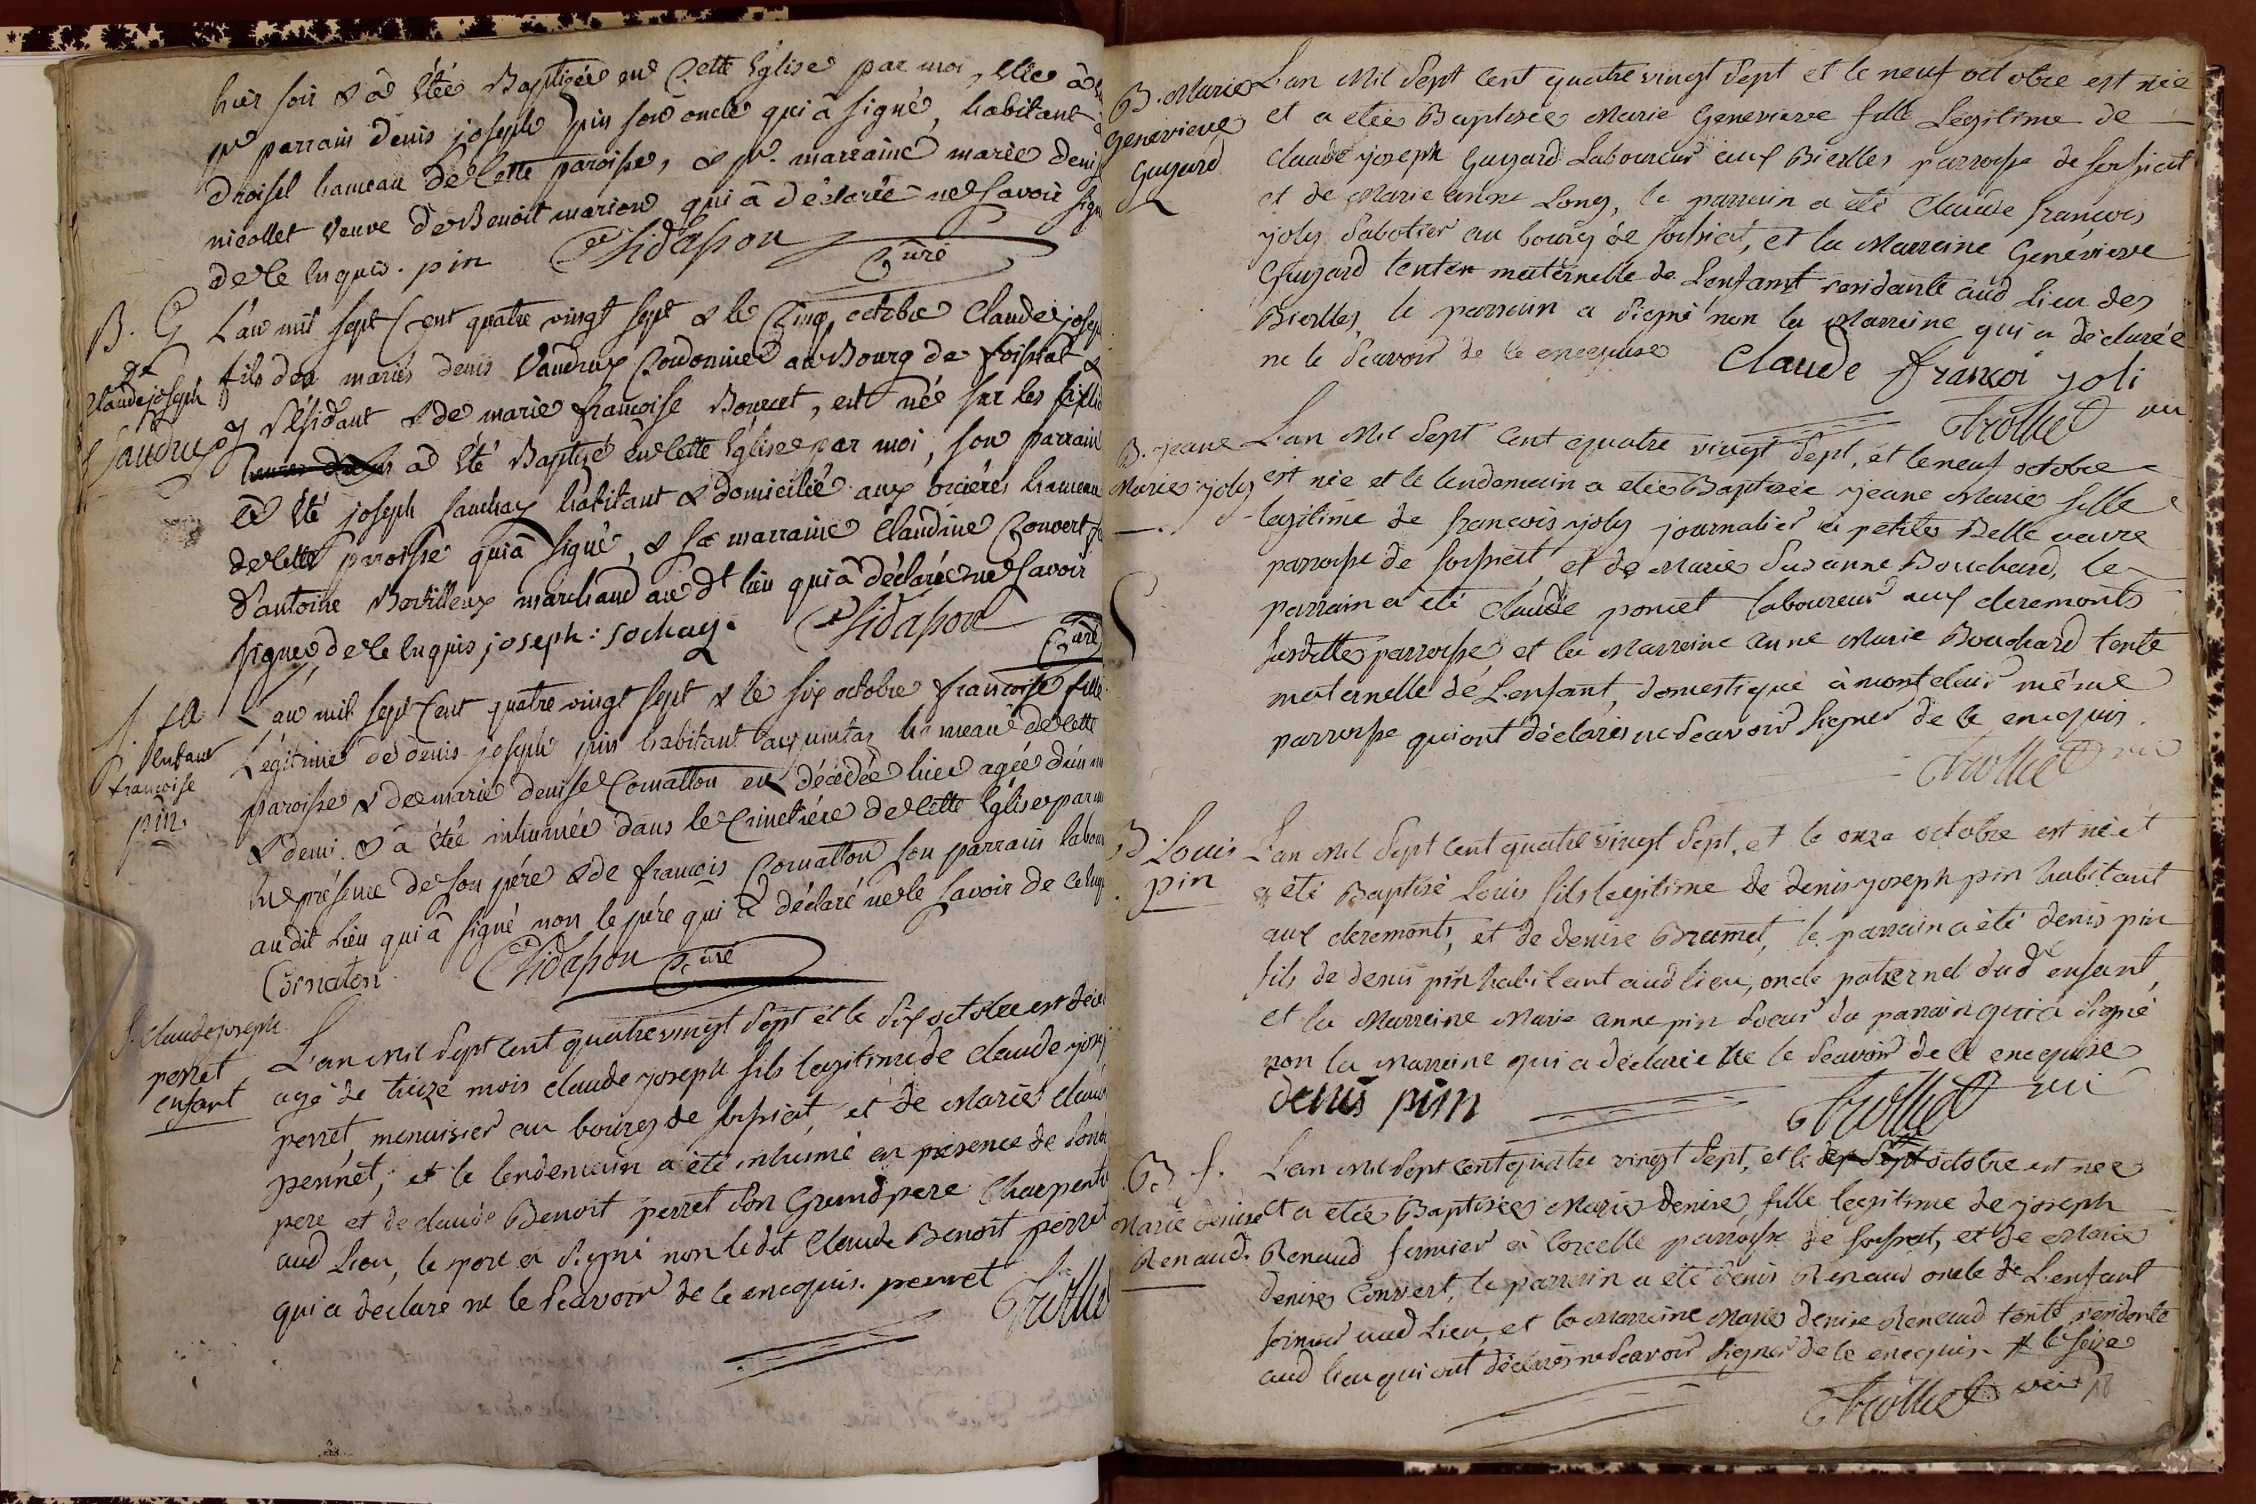 hier soir & a été Baptisée en Cette Eglise par moi, elle a
pr parrain denis joseph pin son oncle qui à signé, habitant
droisel hameau de Cette paroisse, & pr. marraine marie deni
nicollet veuve de Benoit marion qui à déclarée ne savoir sign
de ce enquis. pin Chidapou Curé
B. G
de
Claude joseph
Vaudrey
L'an mil sept Cent quatre vingt sept & le Cinq octobre Claude joseph
fils des mariés denis Vandrey Cordonnier au Bourg de foissiat &
y Résidant & de marie françoise Bouvet, est né sur les six
ad été Baptisé en Cette Eglise par moi, son parrain
a été joseph Sauchay habitant & domicilié aux orcières hameau
de Cette paroisse qui à signé, & sa marraine Claudine Convert
d'antoine marchand au dt lieu qui à déclarée ne savoir
signer de ce enquis joseph : sochay. Chidapou Curé
enfant
françoise
pin.
L'an mil sept Cent quatre vingt sept & le six octobre françoise fille
Légitime de denis joseph pin habitant hameau de Cette
paroisse & de marie denise Cornatton est décédée hier agée d'un an
& demi. & a été inhumée dans le Cimetière de Cette Eglise par m
en présence de son père & de françois Cornatton son parrain labour
au dit Lieu qui à signé non le père qui a déclaré ne le savoir de ce enqu
Cornaton Chidapou Curé
S. Claude joseph
perret
enfant
L'an mil sept cent quatre vingt sept et le six octobre est décé
agé de treize mois claude joseph fils legitime de claude jose
perret, menuisier au bourg de foissiat, et de Marie claud
pennet; et le lendemain a été inhumé en presence de son
pere et de claude Benoit perret son Grand pere Charpent
aud Lieu, le pere a signé non le dit Claude Benoit perret
qui a declaré ne le sçavoir de ce enequis. perret
Trolliet
B. Marie
Genevieve
Guyard
L'an Mil sept cent quatre vingt sept et le neuf octobre est née
et a etée Baptisée Marie Genevieve fille Legitime de
claude joseph Guyard Laboureur aux Bielles parroisse de foissiat
et de Marie anne Long, le parrain a été Claude françois
joly sabotier au bourg de foissiat, et la Marraine Genevieve
Guyard tente maternelle de L'enfant residante aud Lieu des
Bielles, le parrain a signé non la Marraine qui a déclarée
ne le sçavoir de ce enequise Claude françoi joli
Trolliet vic
B. jeane
Marie joly
L'an Mil sept cent quatre vingt sept, et le neuf octobre
est née et le lendemain a etée Baptisée jeane Marie fille
legitime de françois joly journalier à petite Belle vavre
parroisse de foissiat et de Marie Susanne Bouchard, le
parrain a été claude poncet laboureur aux cleremonts
susditte parroisse, et la Marraine anne Marie Bouchard tente
maternelle de L'enfant, domestique à montclair même
parroisse qui ont déclarés ne sçavoir signer de ce enequis.
Trolliet vic
B. Louis
pin
L'an Mil sept cent quatre vingt sept, et le onze octobre est né et
a été Baptisé Louis fils legitime de denis joseph pin habitant
aux cleremonts, et de denise Brumet, le parrain a été denis pin
fils de denis pin habitant aud lieu, oncle paternel dud enfant,
et la Marraine Marie anne pin soeur du parrain qui a signé
non la Marraine qui a déclarée ne le sçavoir de ce enequise
denis pin Trolliet vic
B. f.
Marie denise
Renaud.
L'an Mil sept cent quatre vingt sept, et le octobre est née
et a etée Baptisée Marie denise, fille legitime de joseph
Renaud fermier à Corcelle parroisse de foissiat, et de Marie
denise Convert, le parrain a été denis Renaud oncle de L'enfant
fermier aud Lieu, et la Marraine Marie denise Renaud tente residente
aud lieu qui ont déclarés ne sçavoir signer de ce enequis. # le seize
Trolliet vic